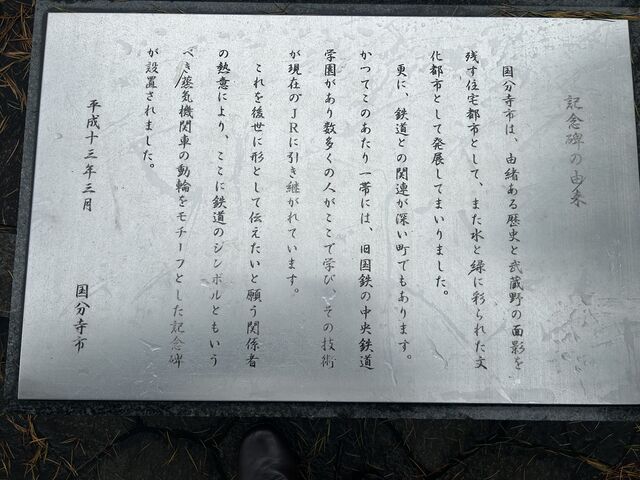 記念碑の由来
国分寺市は、由緒ある歴史と武蔵野の面影を
残す住宅都市として、また水と緑に彩られた文
化都市として発展してまいりました。
更に、鉄道との関連が深い町でもあります。
かつてこのあたり一帯には、旧国鉄の中央鉄道
学園があり数多くの人がここで学び、その技術
が現在のJRに引き継がれています。
これを後世に形として伝えたいと願う関係者
の熱意により、ここに鉄道のシンボルともいう
べき蒸気機関車の動輪をモチーフとした記念碑
が設置されました。
平成十三年三月
国分寺市